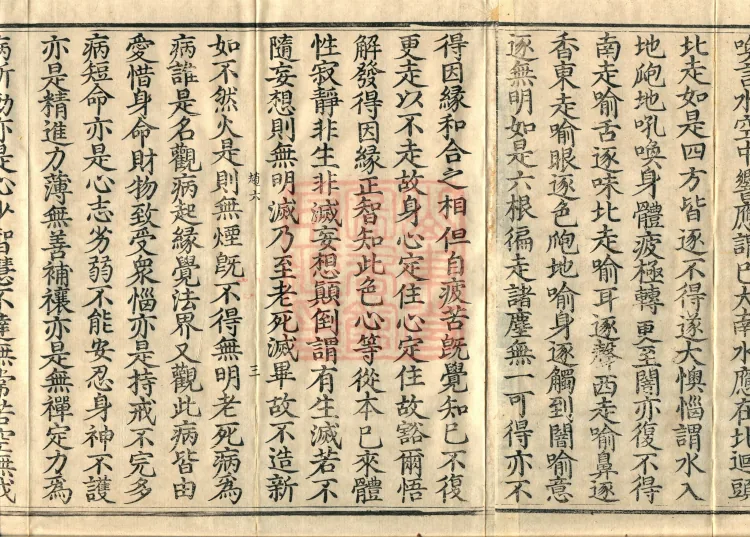 喚言水空中響應謂已在南水應在北迴頭
北走如是四方皆逐不得遂大懊惱謂水入
地爮地吼喚身體疲極轉更至闇亦復不得
南走喻舌逐味北走喻耳逐聲西走喻鼻逐
香東走喻眼逐色爮地喻身逐觸到闇喻意
逐無明如是六根徧走諸塵無一可得亦不
得因緣和合之相但自疲苦旣覺知已不復
更走以不走故身心定住心定住故豁爾悟
解發得因緣正智知此色心等從本已來體
性寂靜非生非滅妄想顛倒謂有生滅若不
隨妄想則無明滅乃至老死滅畢故不造新
三
如不然火是則無煙旣不得無明老死病爲
病誰是名觀病起緣覺法界又觀此病皆由
愛惜身命財物致受眾惱亦是持戒不完多
病短命亦是心志劣弱不能安忍身神不護
亦是精進力薄無善補禳亦是無禪定力爲
病所動亦是心少智慧不達無常苦空無我